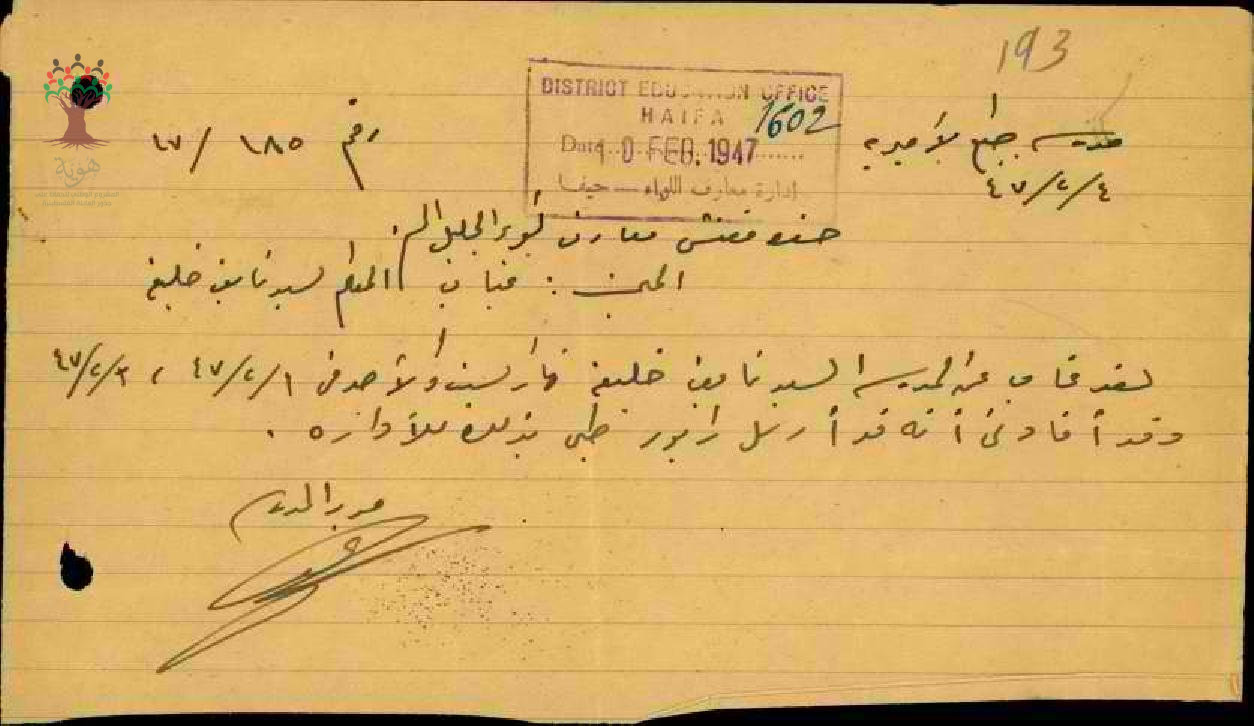 193
DISTRICT EDUCATION OFFICE
HAIFA
1602
Date 10 FEB. 1947
ادارة معارف اللواء — حيفا
مدرسة جبع الاميرية
٤/٢/٤٧
رقم ١٨٥/٤٧
حضرة مفتش معارف لواء الجليل المحترم
غياب المعلم السيد نايف خليفة
لقد غاب عن المدرسة السيد نايف خليفة نهار السبت والأحد في ١/٢/٤٧ ، ٣/٢/٤٧
وقد أفادني أنه قد أرسل رابور طبي بذلك للادارة .
مدير المدرسة
هوية